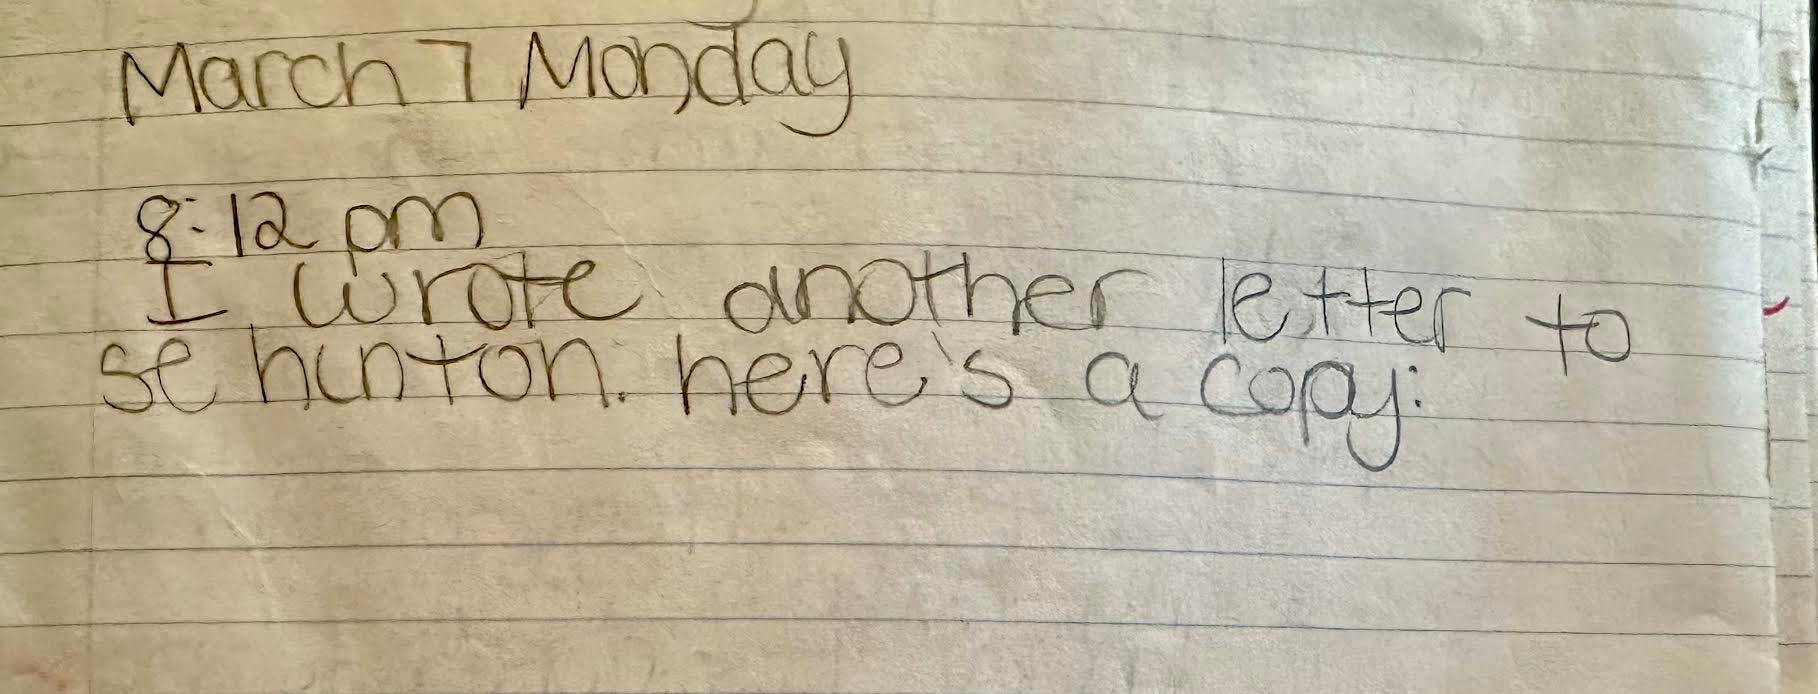 March 7 Monday
8:12 pm
I wrote another letter to
se hinton. here's a copy: